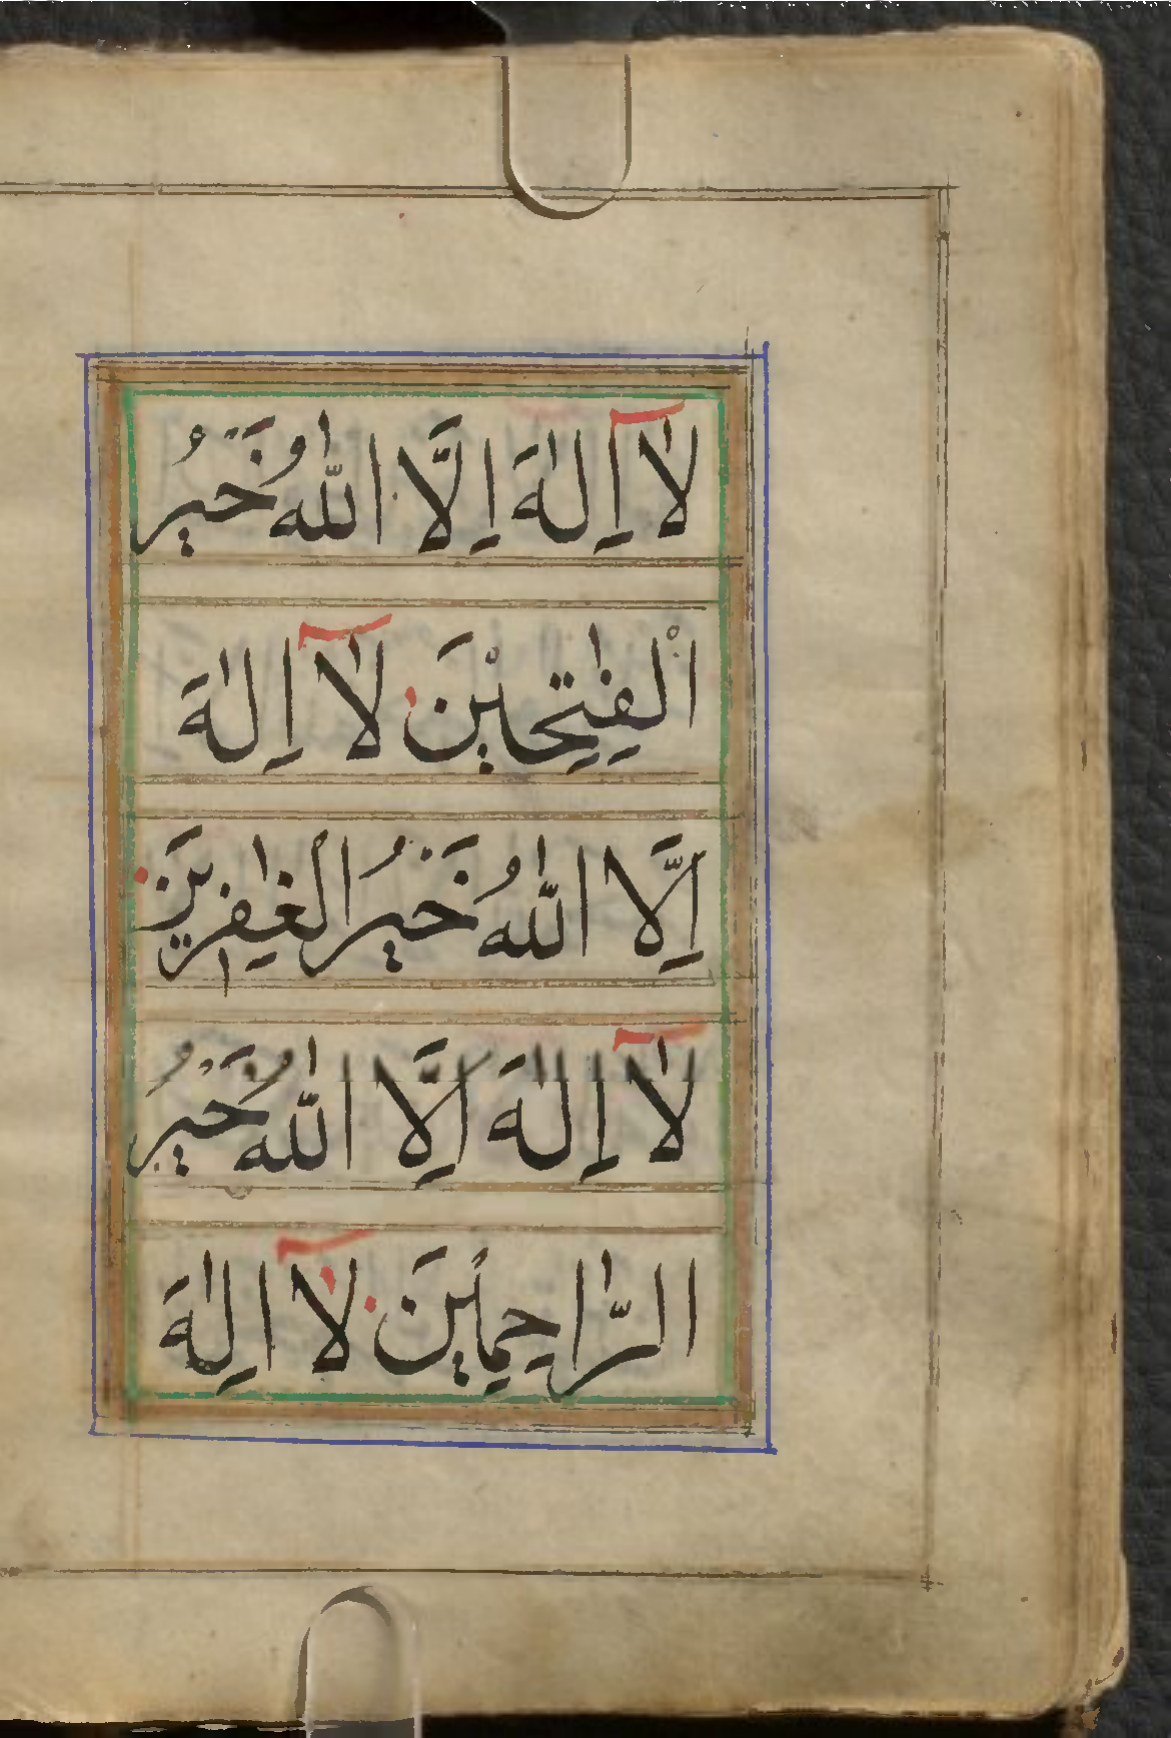 لَآ اِلٰهَ اِلَّا اللّٰهُ خَيْرُ
الْفٰتِحِيْنَ لَآ اِلٰهَ
اِلَّا اللّٰهُ خَيْرُ الْغٰفِرِيْنَ
لَآ اِلٰهَ اِلَّا اللّٰهُ خَيْرُ
الرَّاحِمِيْنَ لَآ اِلٰهَ